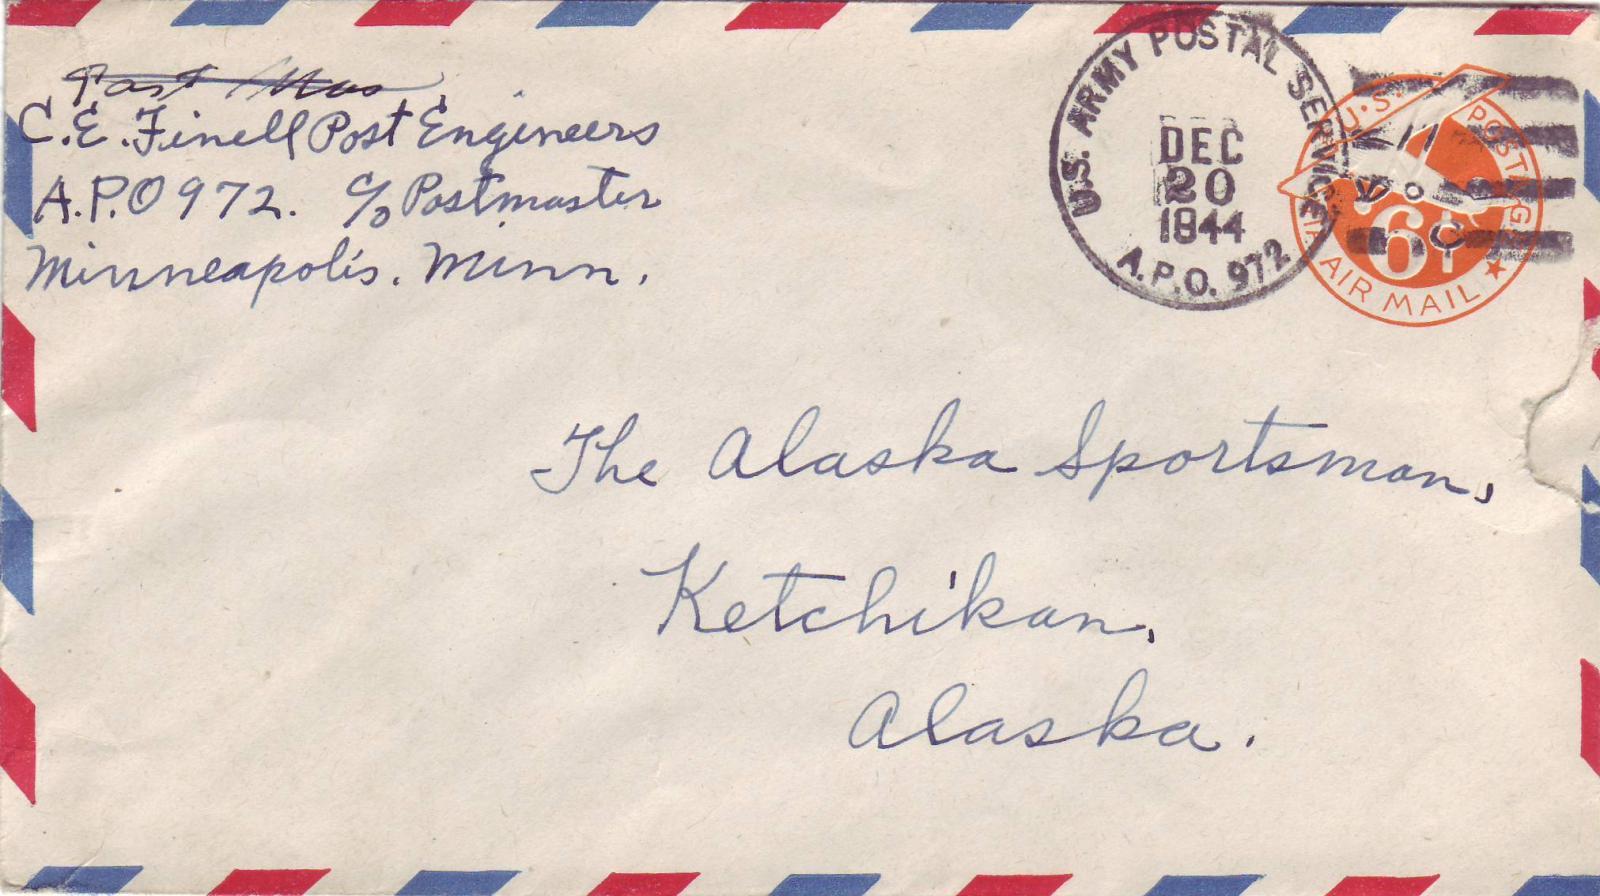 Post
C.E. Finell Post Engineers
A.P.O 972. c/o Postmaster
Minneapolis. Minn.
U.S. ARMY POSTAL SERVICE
DEC
20
1944
A.P.O. 972
U.S. POSTAGE
6¢
VIA AIR MAIL
The Alaska Sportsman,
Ketchikan,
Alaska.